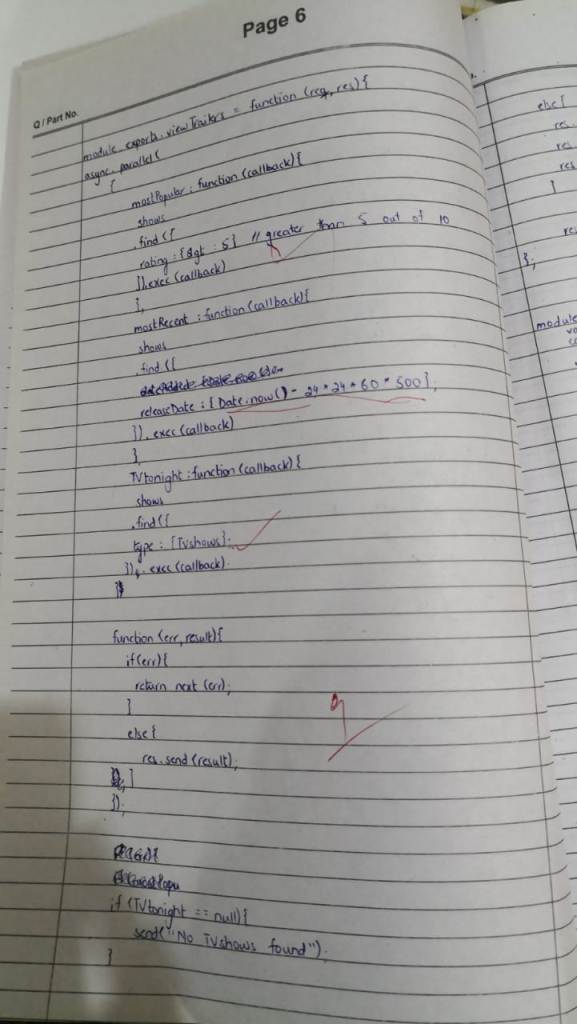 Page 6
Q / Part No.
module.exports.viewTrailers = function (req, res){
async.parallel(
{
mostPopular : function (callback){
shows
.find ({
rating : {$gt : 5} // greater than 5 out of 10
}).exec (callback)
},
mostRecent : function (callback){
shows
.find ({
releaseDate : {Date.now() - 24 * 24 * 60 * 500},
}).exec (callback)
},
TVtonight : function (callback){
shows
.find ({
type : {Tvshows};
}).exec (callback).
}
function (err, result){
if (err){
return next (err);
}
else {
res.send (result);
}
});
9
if (TVtonight == null){
send("No TVshows found").
}
else {
res.
res
res
}
re
};
module